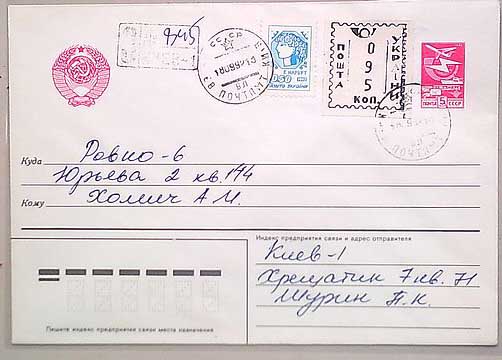 945
СССР
ПОЧТАМТ
0.50
ПОШТА УКРАЇНИ
ПОШТА
УКРАЇНИ
0 9 5
КОП.
ПОЧТА 5 СССР
Куда Ровно-6
Юрьева 2 кв. 144
Кому Холмич А И.
Индекс предприятия связи и адрес отправителя
Киев-1
Хрещатик 7 кв. 71
Шурин П.К.
Пишите индекс предприятия связи места назначения